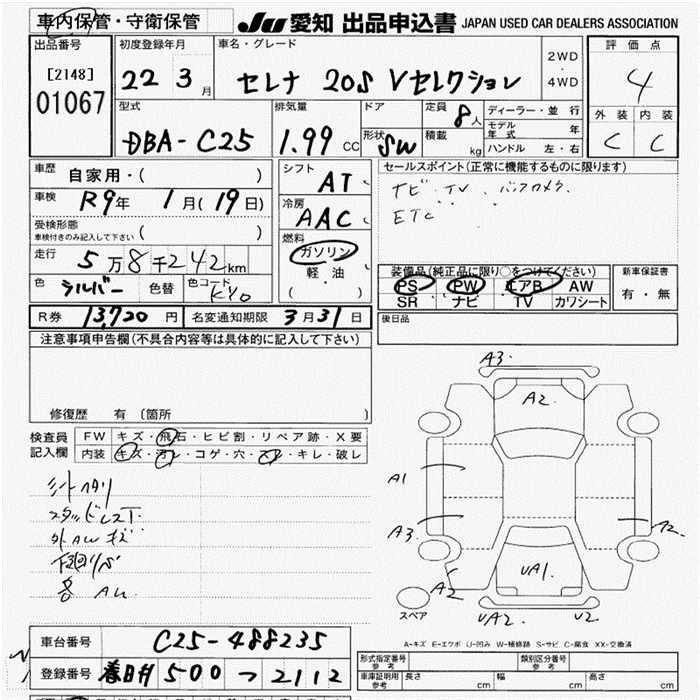 車内保管・守衛保管
JU 愛知 出品申込書 JAPAN USED CAR DEALERS ASSOCIATION
出品番号
[2148]
01067
初度登録年月
22 3月
車名・グレード
セレナ 20S Vセレクション
2WD
・
4WD
評価点
4
外装 内装
C C
型式
DBA-C25
排気量
1.99 CC
ドア
形状 SW
定員 8人
積載 kg
ディーラー・並行
モデル年式 年
ハンドル 左・右
車歴
自家用・( )
車検
R9年 1月(19日)
受検形態
車検付きのみ記入して下さい ( )
走行
5万8千242km
色 シルバー 色替 色コード KY0
シフト
AT
冷房
AAC
燃料
ガソリン
軽・油
( )
セールスポイント(正常に機能するものに限ります)
ナビ TV バックカメラ
ETC
装備品(純正品に限り○をつけてください)
PS PW エアB AW
SR ナビ TV カワシート
新車保証書
有・無
R券 13,720円 名変通知期限 3月31日
後日品
注意事項申告欄(不具合内容等は具体的に記入して下さい)
修復歴 有 (箇所 )
検査員記入欄
FW キズ・飛石・ヒビ割・リペア跡・X要
内装 キズ・汚レ・コゲ・穴・スレ・キレ・破レ
シートヘタリ
スタッドレスT
外AWキズ
下廻りサビ
A3
A2
A1
A3
A2
A2
UA1
UA2
U2
スペア
A-キズ E-エクボ U-凹み W-補修跡 S-サビ C-腐食 XX-交換済
車台番号 C25-488235
登録番号 春日井 500 つ 2112
形式指定番号 参考
類別区分番号 参考
車庫証明用 参考 長さ cm 幅 cm 高さ cm